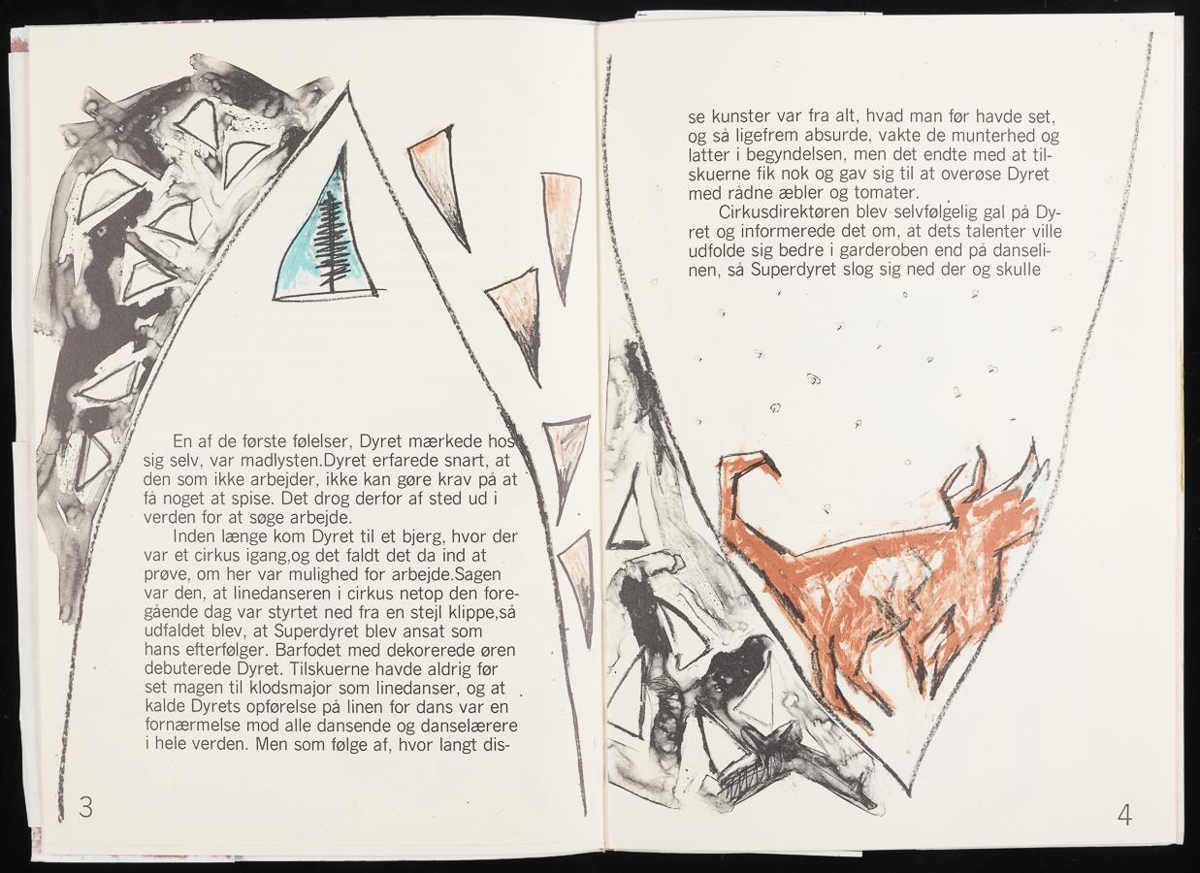 En af de første følelser, Dyret mærkede hos
sig selv, var madlysten.Dyret erfarede snart, at
den som ikke arbejder, ikke kan gøre krav på at
få noget at spise. Det drog derfor af sted ud i
verden for at søge arbejde.
Inden længe kom Dyret til et bjerg, hvor der
var et cirkus igang,og det faldt det da ind at
prøve, om her var mulighed for arbejde.Sagen
var den, at linedanseren i cirkus netop den fore-
gående dag var styrtet ned fra en stejl klippe,så
udfaldet blev, at Superdyret blev ansat som
hans efterfølger. Barfodet med dekorerede øren
debuterede Dyret. Tilskuerne havde aldrig før
set magen til klodsmajor som linedanser, og at
kalde Dyrets opførelse på linen for dans var en
fornærmelse mod alle dansende og danselærere
i hele verden. Men som følge af, hvor langt dis-
3
se kunster var fra alt, hvad man før havde set,
og så ligefrem absurde, vakte de munterhed og
latter i begyndelsen, men det endte med at til-
skuerne fik nok og gav sig til at overøse Dyret
med rådne æbler og tomater.
Cirkusdirektøren blev selvfølgelig gal på Dy-
ret og informerede det om, at dets talenter ville
udfolde sig bedre i garderoben end på danseli-
nen, så Superdyret slog sig ned der og skulle
4